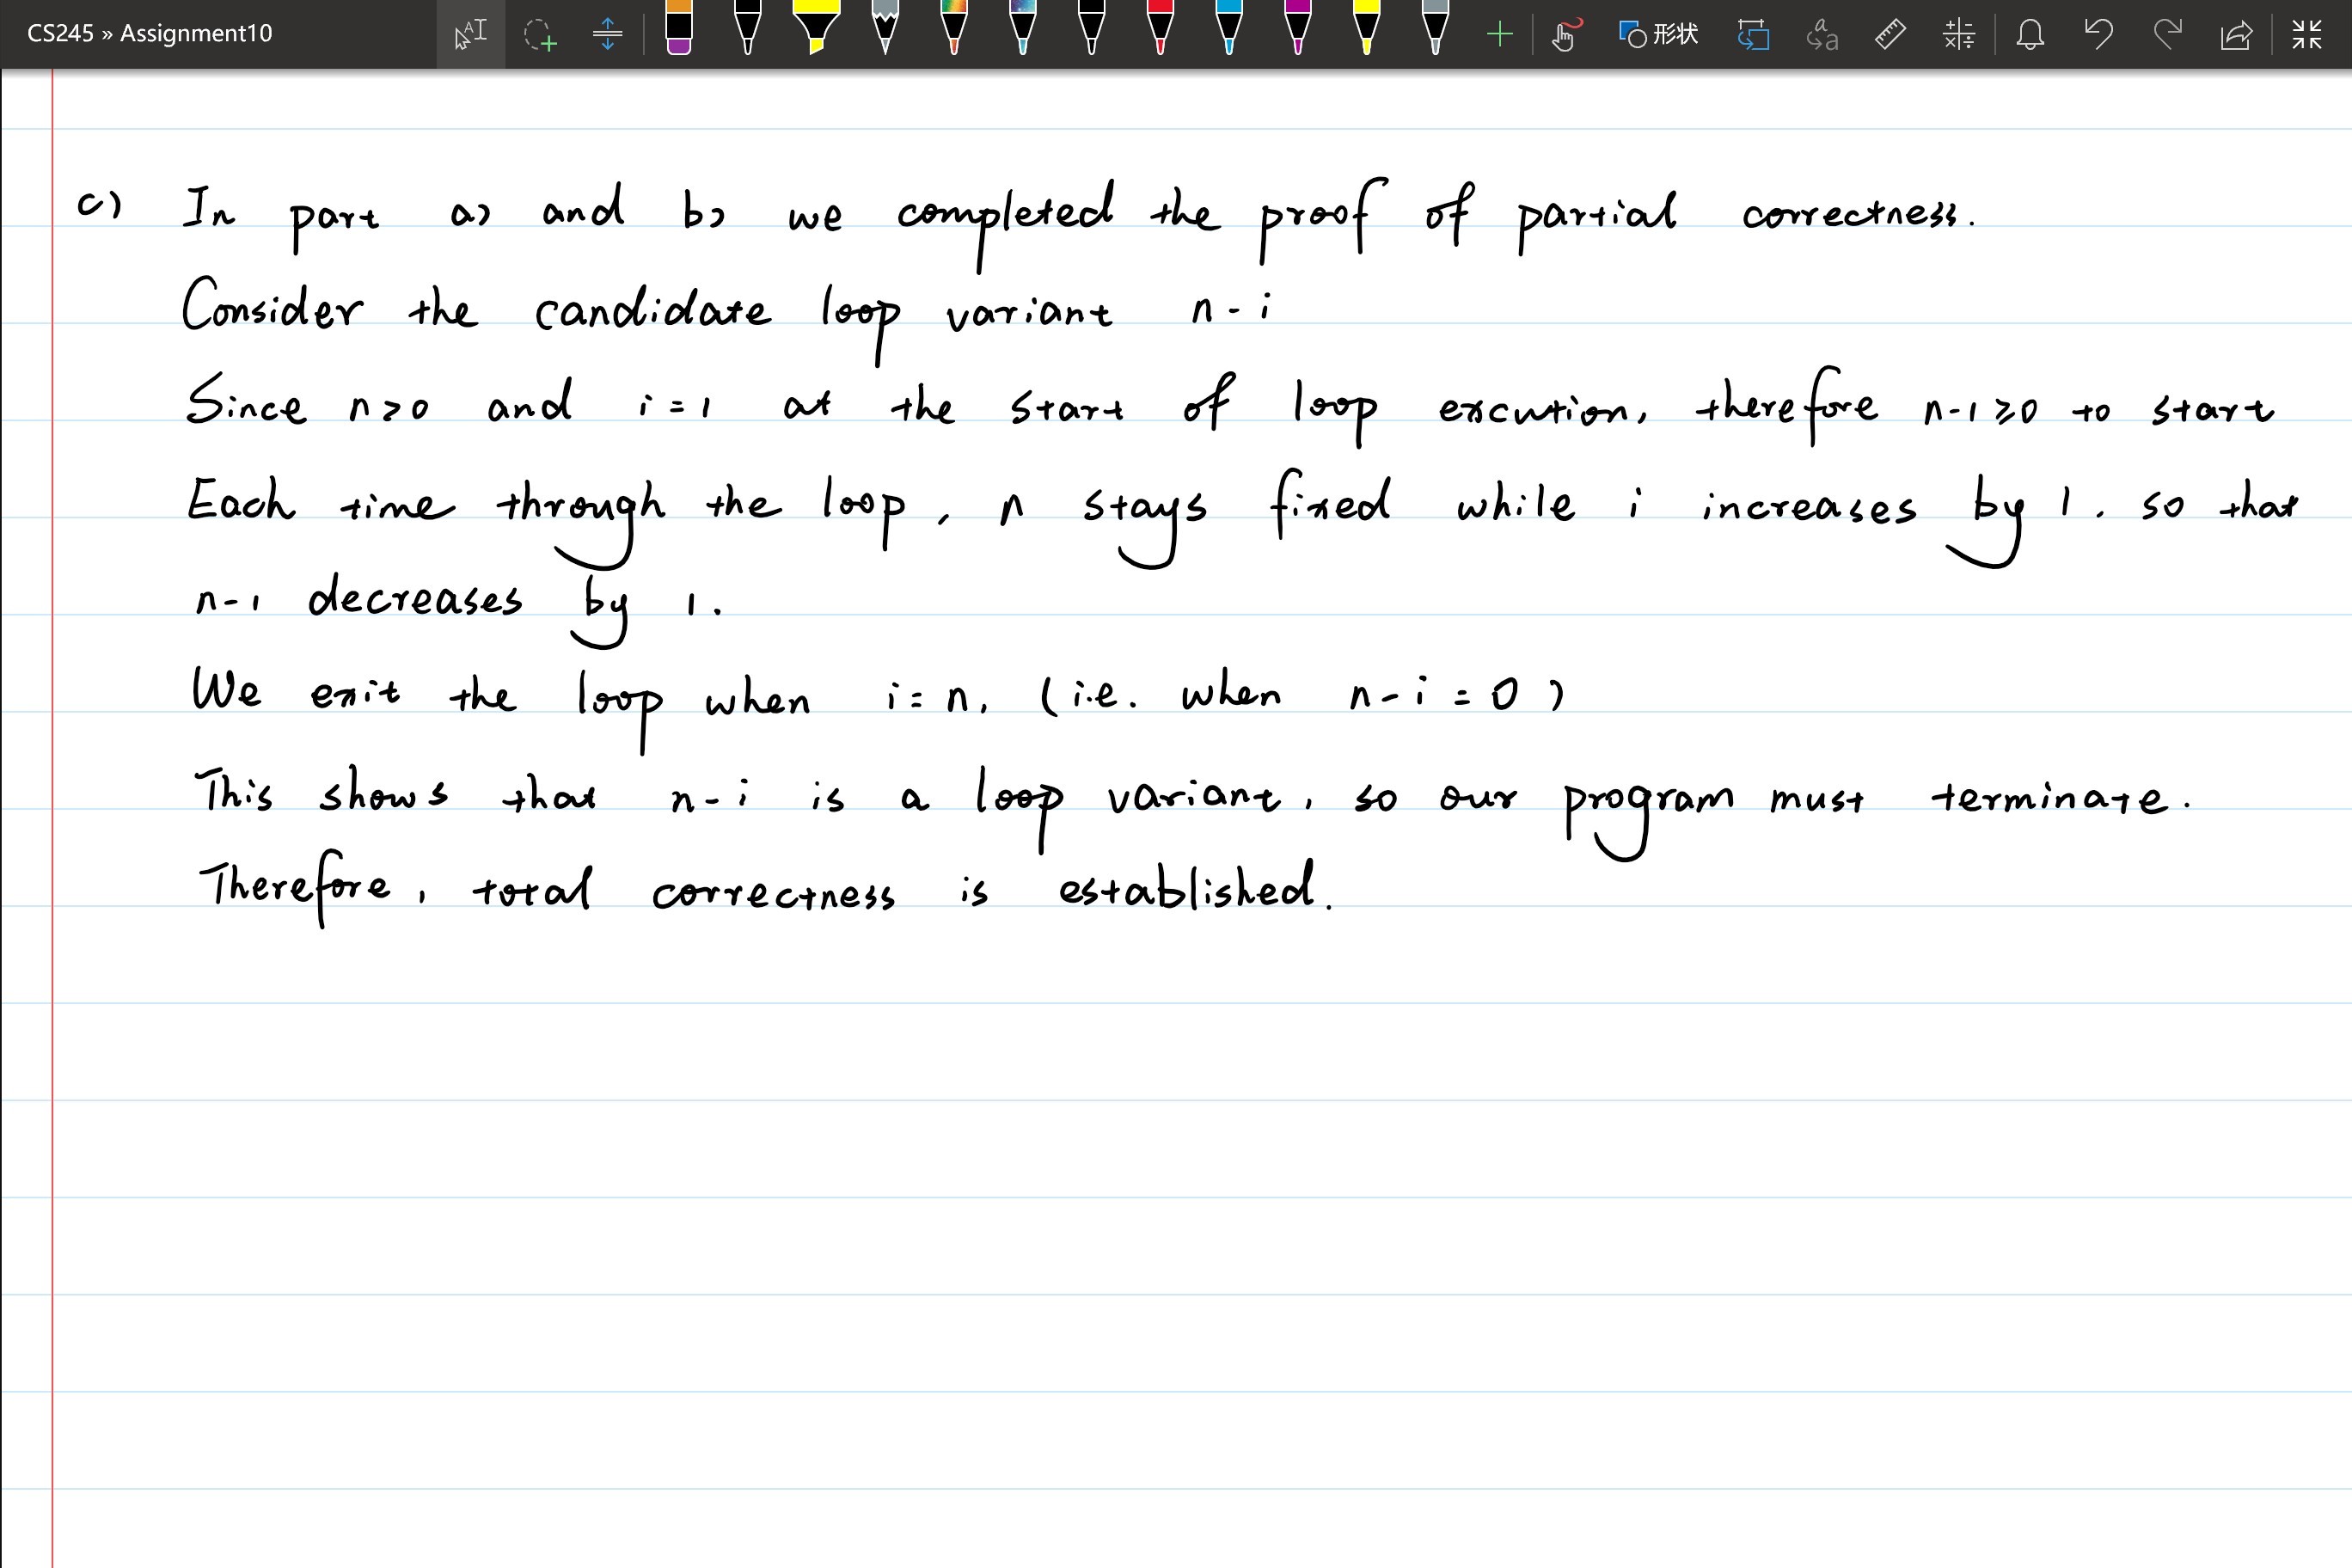 CS245 » Assignment10
形状
c) In part a) and b) we completed the proof of partial correctness.
Consider the candidate loop variant n-i
Since n>0 and i=1 at the start of loop excution, therefore n-1≥0 to start
Each time through the loop, n stays fixed while i increases by 1. so that
n-1 decreases by 1.
We exit the loop when i=n, (i.e. when n-i=0)
This shows that n-i is a loop variant, so our program must terminate.
Therefore, total correctness is established.